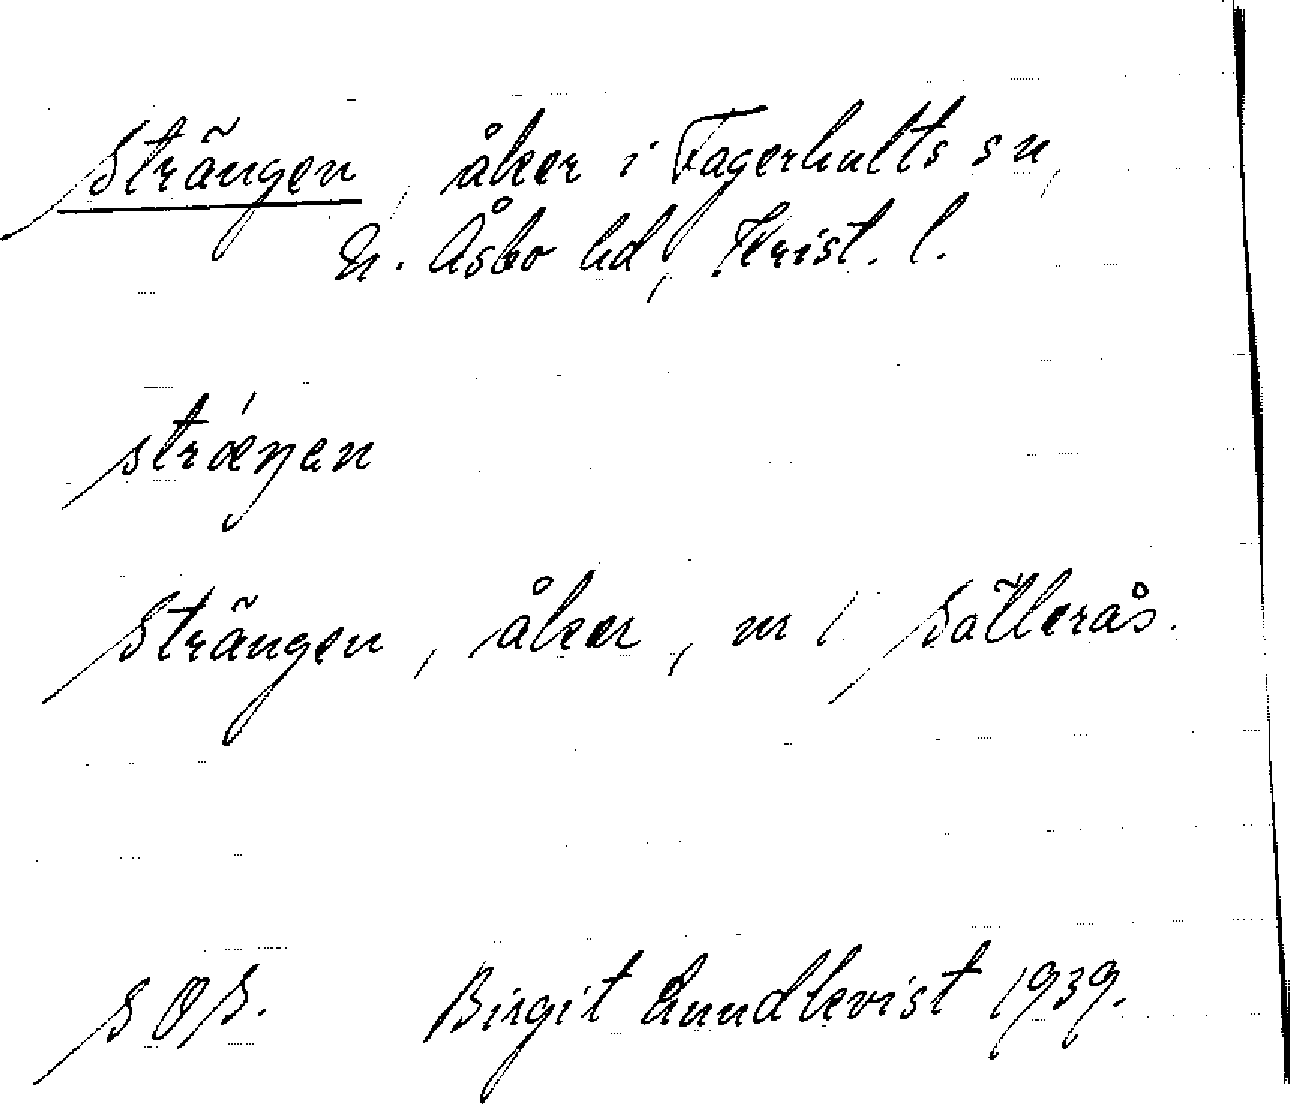 Strängen, åker i Fagerhults sn,
N. Åsbo hd, Krist. l.
stræ´ŋen
Strängen, åker, nr 1 Sållerås.
SOS. Birgit Lundkvist 1939.